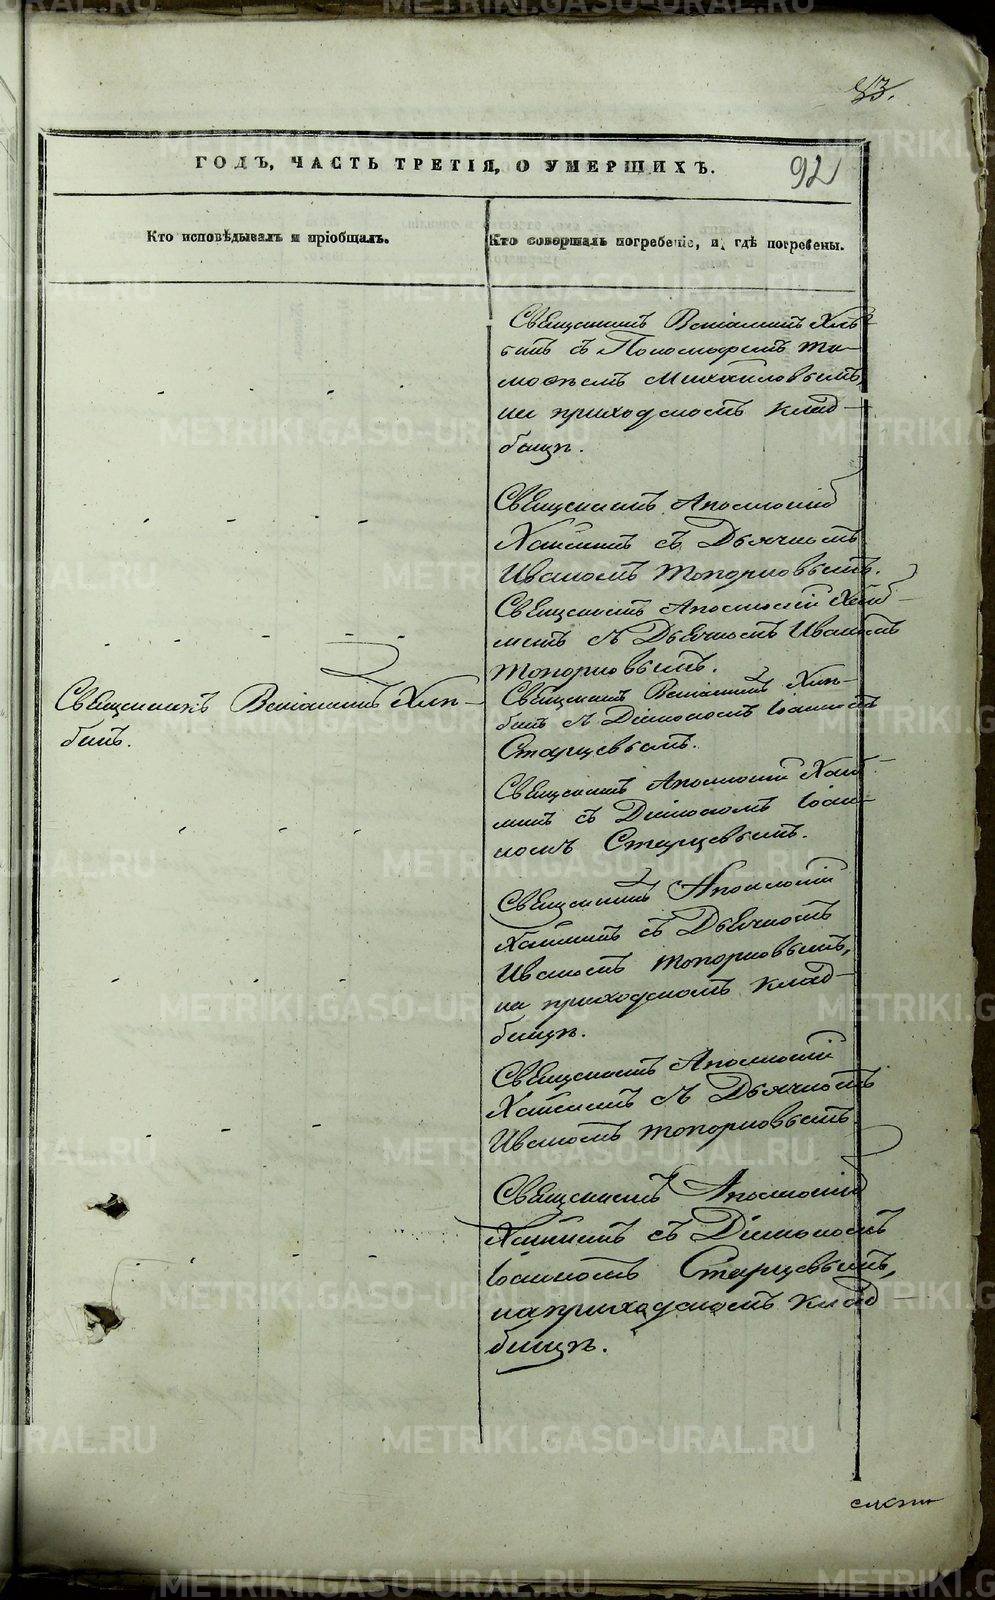 83.
ГОДЪ, ЧАСТЬ ТРЕТІЯ, О УМЕРШИХЪ.
92
Кто исповѣдывалъ и пріобщалъ.
Кто совершалъ погребеніе, и гдѣ погребены.
Священникъ Веніаминъ Хлѣ-
бинъ съ Пономаремъ Ти-
моѳеемъ Михайловымъ,
на приходскомъ клад-
бищѣ.
Священникъ Аполлоній
съ Дьячкомъ
Иваномъ Топорковымъ.
Священникъ Аполлоній
съ Дьячкомъ Иваномъ
Топорковымъ.
Священникъ Веніаминъ Хлѣ-
бинъ.
Священникъ Веніаминъ Хлѣ-
бинъ съ Діакономъ Іоанномъ
Старцевымъ.
Священникъ Аполлоній
съ Діакономъ Іоан-
номъ Старцевымъ.
Священникъ Аполлоній
съ Дьячкомъ
Иваномъ Топорковымъ,
на приходскомъ клад-
бищѣ.
Священникъ Аполлоній
съ Дьячкомъ
Иваномъ Топорковымъ.
Священникъ Аполлоній
съ Діакономъ
Іоанномъ Старцевымъ,
на приходскомъ клад-
бищѣ.
METRIKI.GASO-URAL.RU